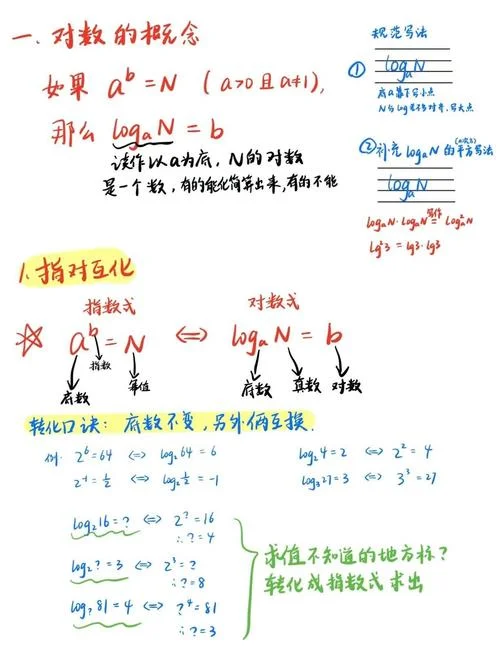 一、对数的概念
如果 a^b = N （a>0 且 a≠1），
那么 log_a N = b
读作以a为底，N的对数
是一个数，有的能化简算出来，有的不能
规范写法
① log_a N
底a靠下写小点
N与log底部对齐，写大点
②补充 log_a N 的平方写法
log_a N
log_a N · log_a N 写作= log_a^2 N
lg^2 3 = lg3 · lg3
1. 指对互化
指数式 对数式
☆ a^b = N ⇔ log_a N = b
指数
底数 幂值 底数 真数 对数
转化口诀：底数不变，另外俩互换.
例: 2^6=64 ⇔ log_2 64 = 6 log_2 4 = 2 ⇔ 2^2 = 4
2^-1 = 1/2 ⇔ log_2 1/2 = -1 log_3 27 = 3 ⇔ 3^3 = 27
log_2 16 = ? ⇔ 2^? = 16
∴ ? = 4
log_2 ? = 3 ⇔ 2^3 = ?
∴ ? = 8
log_? 81 = 4 ⇔ ?^4 = 81
∴ ? = 3
求值不知道的地方标？
转化成指数式求出